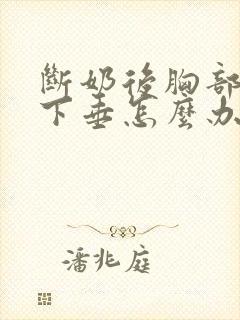 斷奶後胸部
下垂怎麼办
潘兆庭